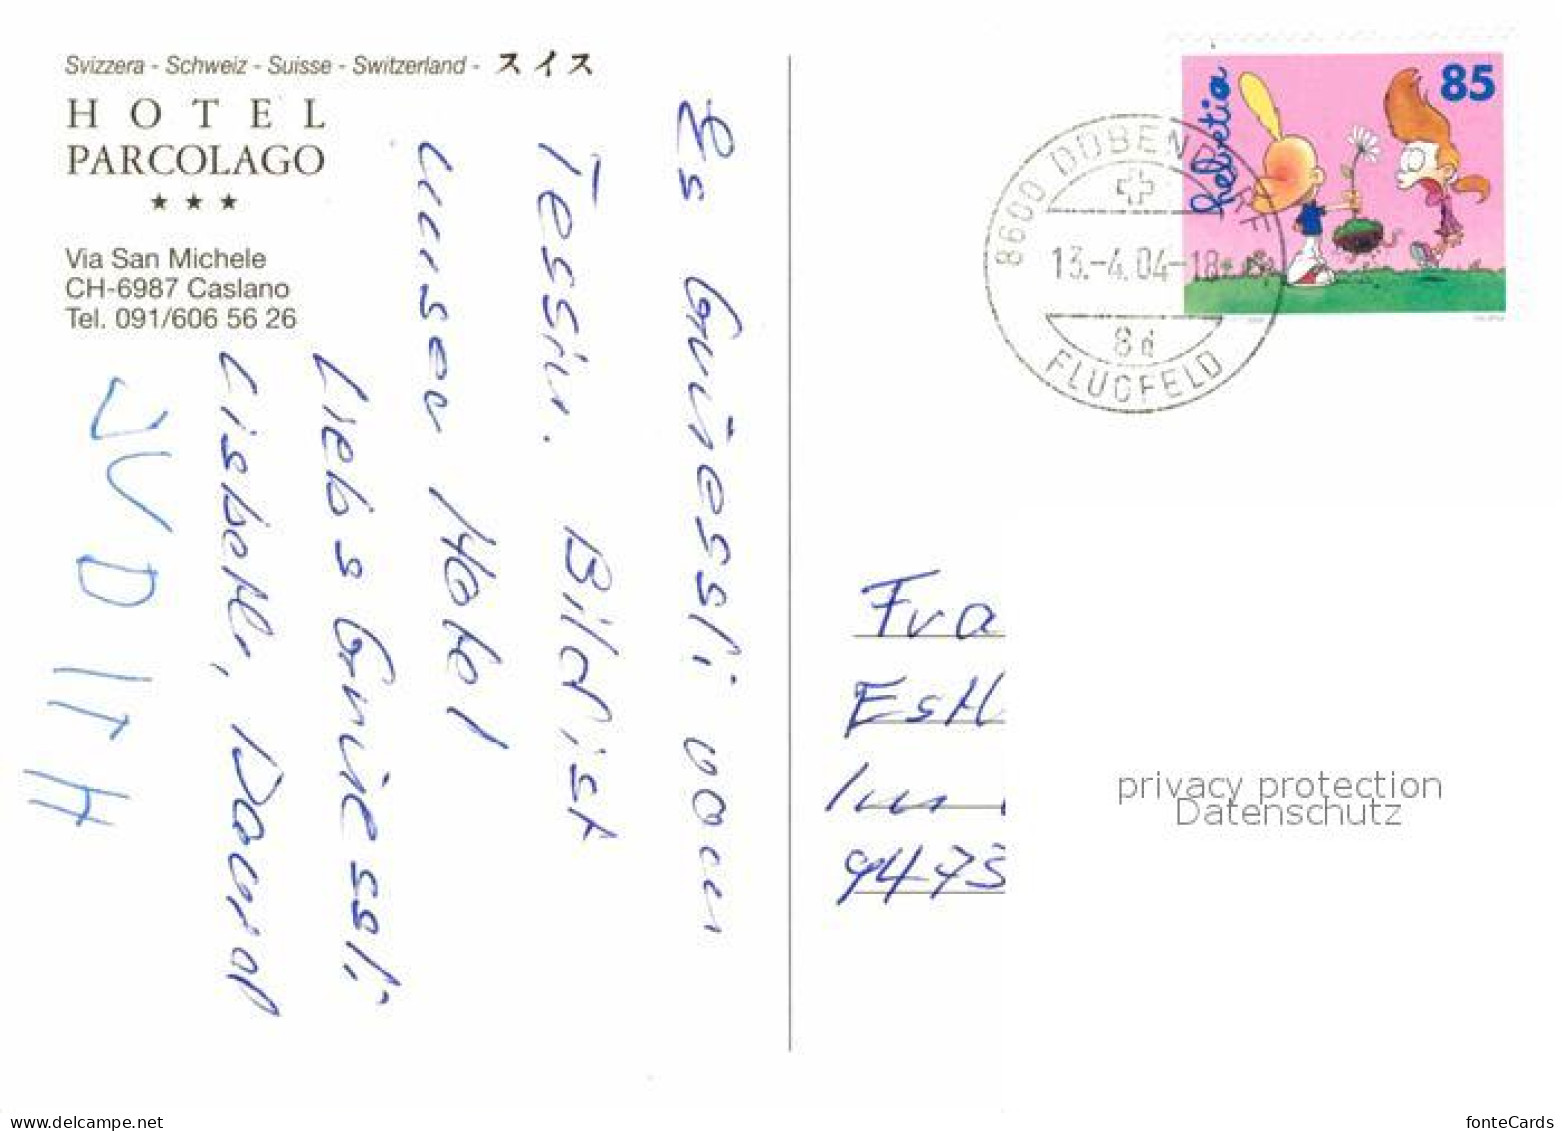 Svizzera - Schweiz - Suisse - Switzerland - スイス
HOTEL
PARCOLAGO
Via San Michele
CH-6987 Caslano
Tel. 091/606 56 26
Es Grüessli vom
Tessin. Bild ist
unser Hotel
Liebs Grüessli
Lisbeth, David
JUDITH
helvetia
85
8600 DÜBENDORF
13.-4.04-18
8d
FLUGFELD
Fra
Esth
Im
9473
privacy protection
Datenschutz
www.delcampe.net
fonteCards